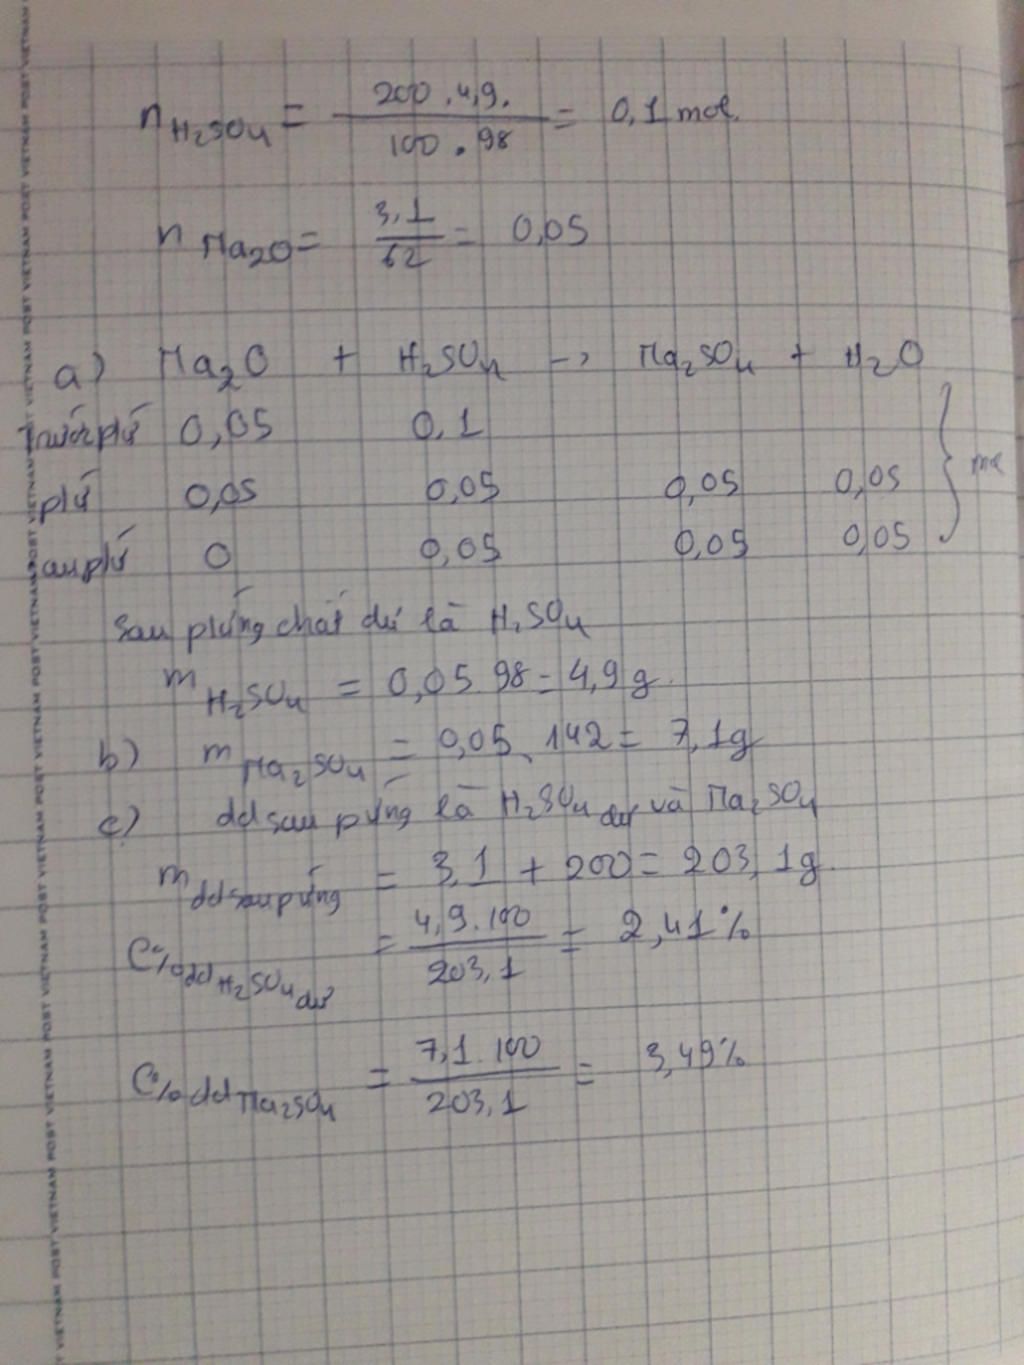 n H₂SO₄ = 200 . 4,9. / 100 . 98 = 0,1 mol.
n Na₂O = 3,1 / 62 = 0,05
a) Na₂O + H₂SO₄ -> Na₂SO₄ + H₂O
Trước pứ 0,05 0,1
pứ 0,05 0,05 0,05 0,05 } mol
sau pứ 0 0,05 0,05 0,05
Sau pứng chất dư là H₂SO₄
m H₂SO₄ = 0,05 . 98 = 4,9 g.
b) m Na₂SO₄ = 0,05 . 142 = 7,1g
c) dd sau pứng là H₂SO₄ dư và Na₂SO₄
m dd sau pứng = 3,1 + 200 = 203,1g.
C% dd H₂SO₄ dư = 4,9.100 / 203,1 = 2,41%
C% dd Na₂SO₄ = 7,1.100 / 203,1 = 3,49%
VIETNAM POST VIETNAM POST VIETNAM POST VIETNAM POST VIETNAM POST VIETNAM POST